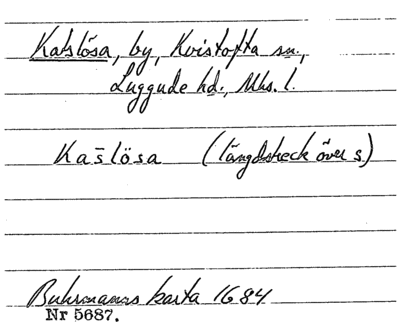 Katslösa, by, Kvistofta sn.,
Luggude hd., Mhs. l.
Kas̄lösa (längdstreck över s.)
Buhrmanns karta 1684
Nr 5687.